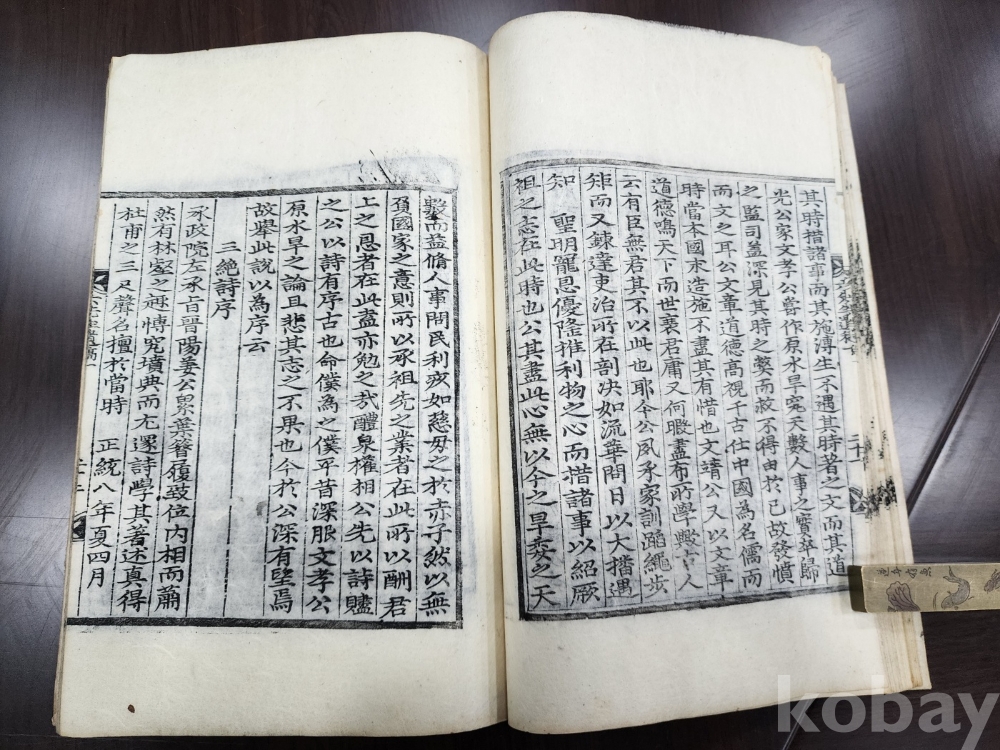 其時措諸事而其施溥生不遇其時著之文而其道
光公家文孝公嘗作原水旱究天數人事之實卒歸
之監司盖深見其時之弊而救不得由於已故發憤
而文之耳公文章道德高視千古仕中國為名儒而
時當本國末造施不盡其有惜也文靖公又以文章
道德鳴天下而世衰君庸又何暇盡布所學興古人
云有臣無君其不以此也耶今公夙承家訓蹈繩步
矩而又鍊達吏治所在剖决如流華問日以大播遇
知 聖明寵恩優隆推利物之心而措諸事以紹厥
祖之志在此時也公其盡此心無以今之旱委之天
數而益脩人事開民利孜孜如慈母之於赤子然以無
負國家之意則所以承祖先之業者在此所以酬君
上之恩者在此盡亦勉之哉醴泉權相公先以詩贐
之公以詩有序古也命僕為之僕平昔深服文孝公
原水旱之論且悲其志之不果也今於公深有望焉
故擧此說以為序云
三絶詩序
承政院左承旨晉陽姜公累葉簪履歧位內相而蕭
然有林壑之趣博究墳典而尤邃詩學其著述真得
杜甫之三尺聲名擅於當時 正統八年夏四月
二十
kobay